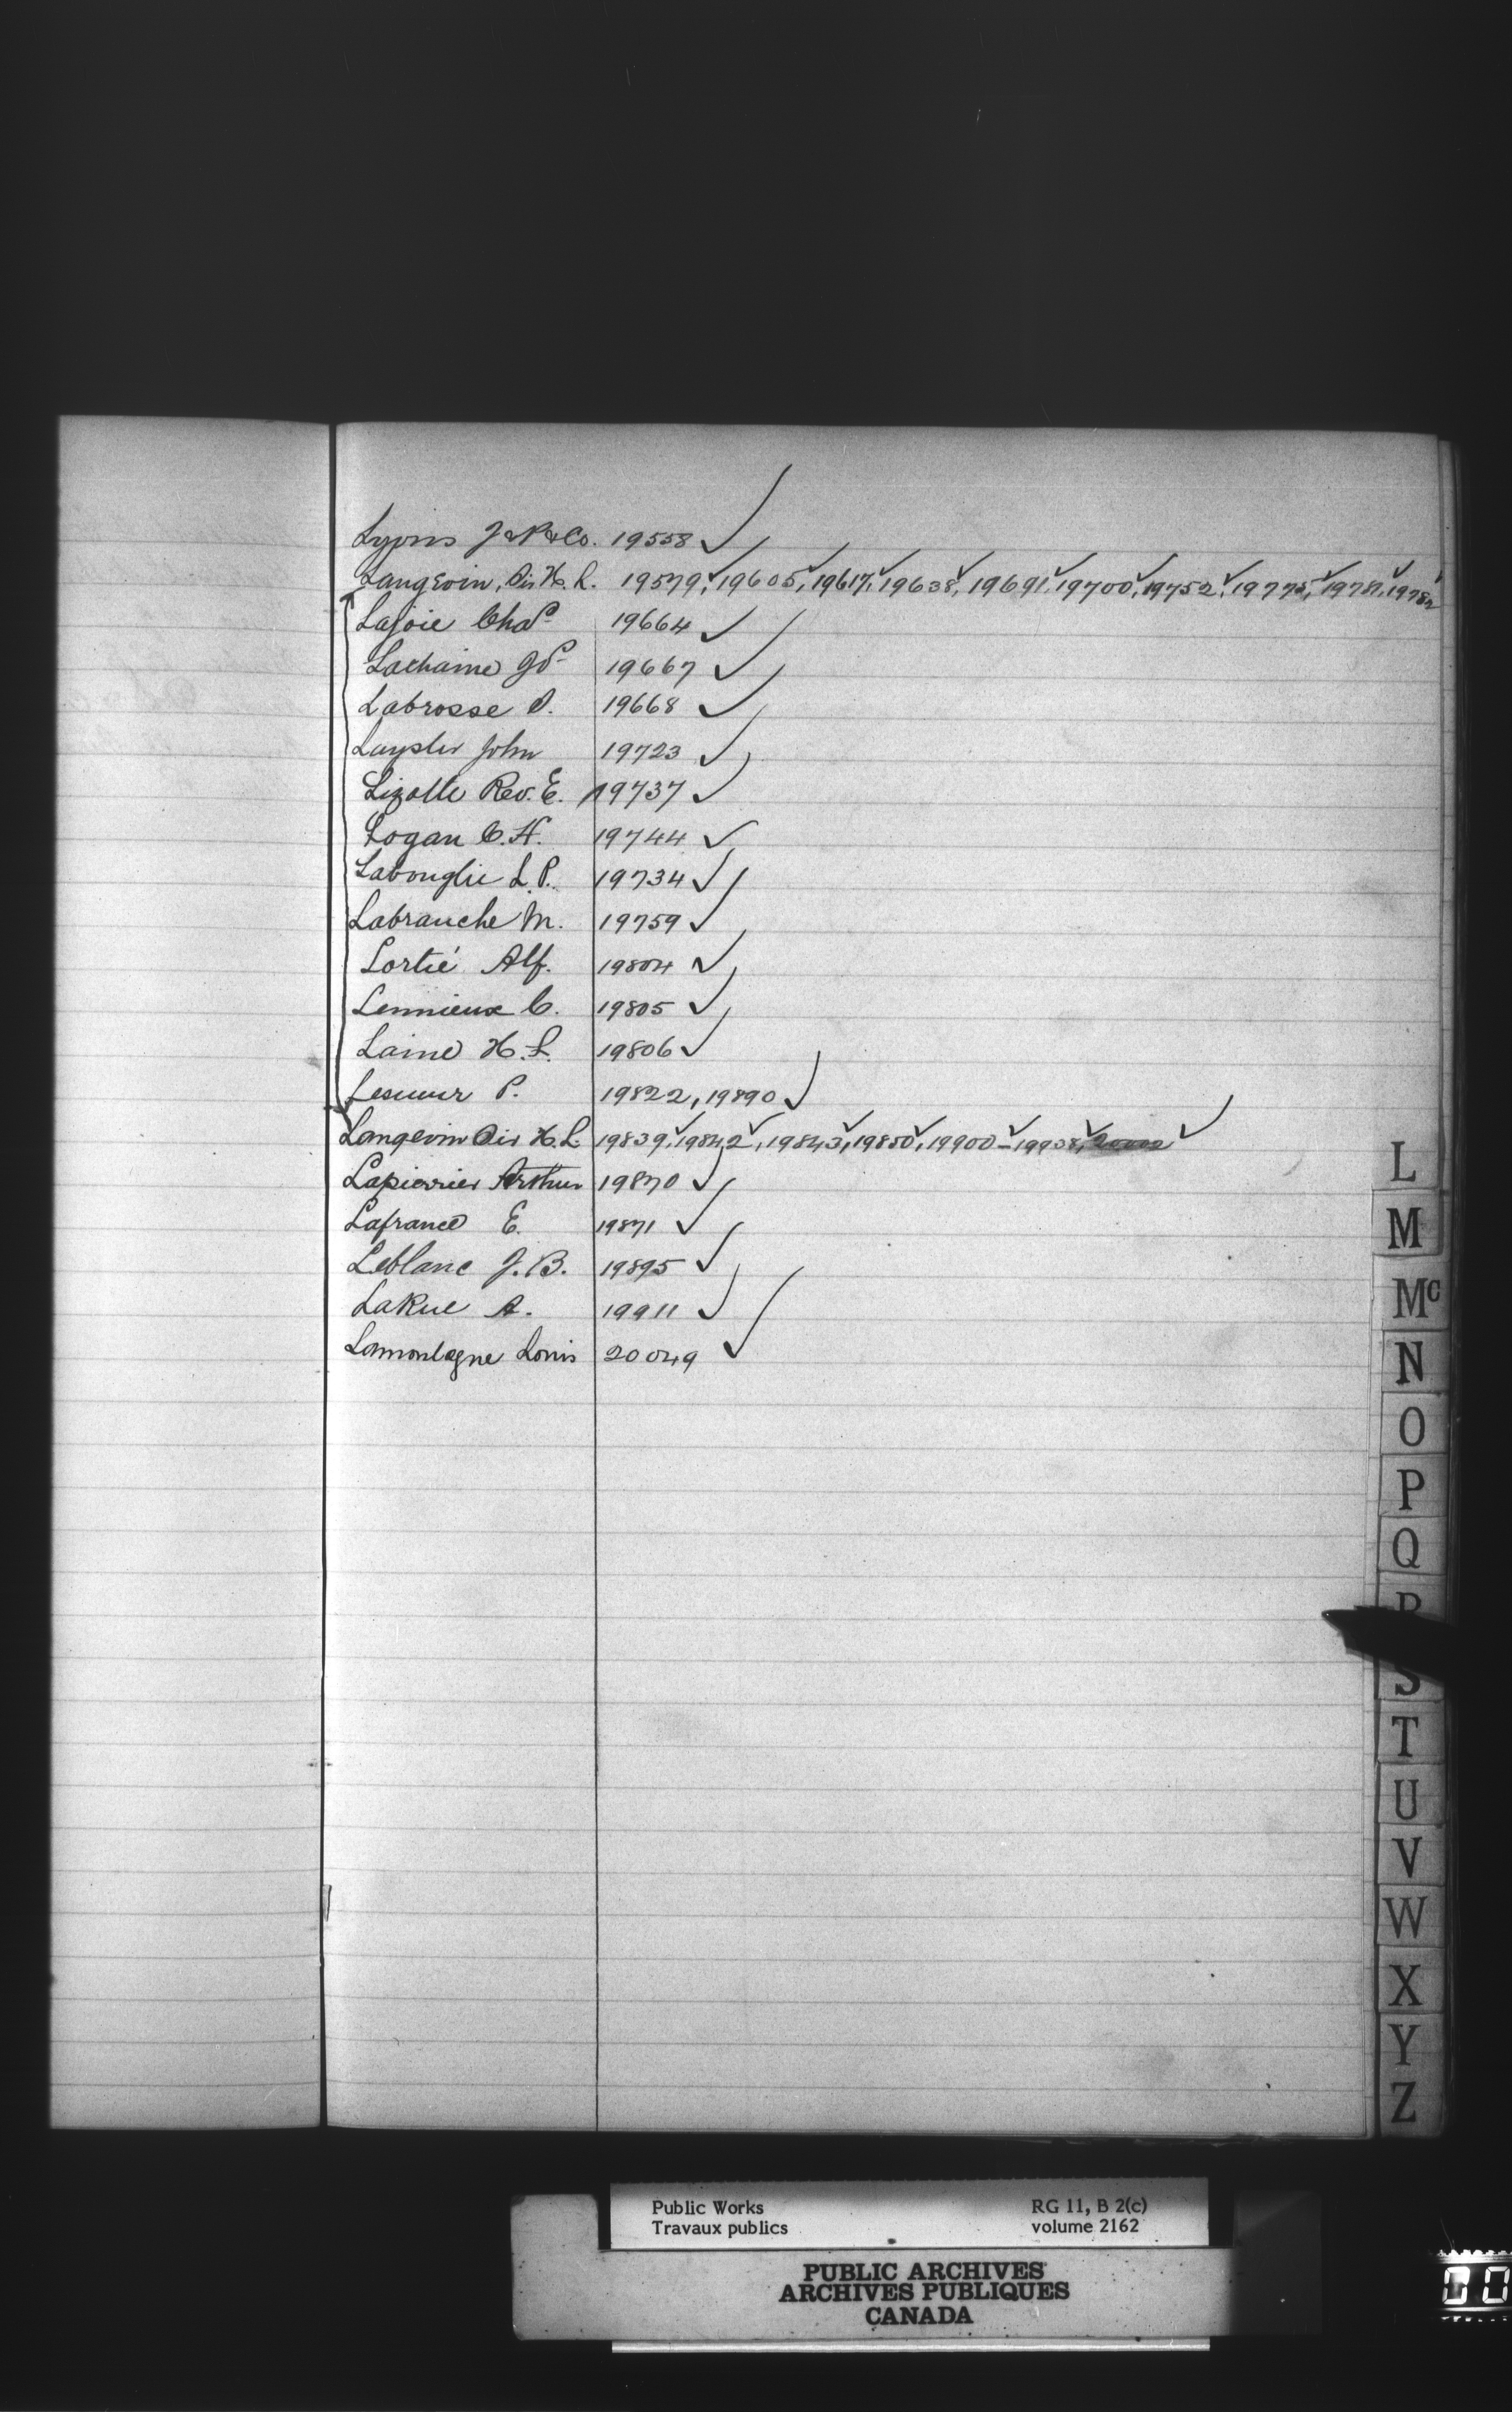 Lyons J & P & Co. 19558 ✓
Langevin, Sir H. L. 19579, 19605, 19617, 19638, 19691, 19700, 19752, 19775, 19781, 19782
Lajoie Chas 19664 ✓
Lachaine Js 19667 ✓
Labrosse D. 19668 ✓
John 19723 ✓
Lizotte Rev. E. 19737 ✓
Logan C. H. 19744 ✓
Labouglie L. P. 19734 ✓
Labranche M. 19759 ✓
Lortié Alf. 19804 ✓
Lemmieux C. 19805 ✓
Laine H. L. 19806 ✓
Lesueur P. 19822, 19890 ✓
Langevin Sir H. L. 19839, 19842, 19843, 19850, 19900 - 19938, ✓
Lapierrier Arthur 19870 ✓
Lafrance E. 19871 ✓
Leblanc J. B. 19895 ✓
LaRue A. 19911 ✓
Lamontagne Louis 20049 ✓
L
M
Mc
N
O
P
Q
R
S
T
U
V
W
X
Y
Z
Public Works RG 11, B 2(c)
Travaux publics volume 2162
PUBLIC ARCHIVES
ARCHIVES PUBLIQUES
CANADA
00